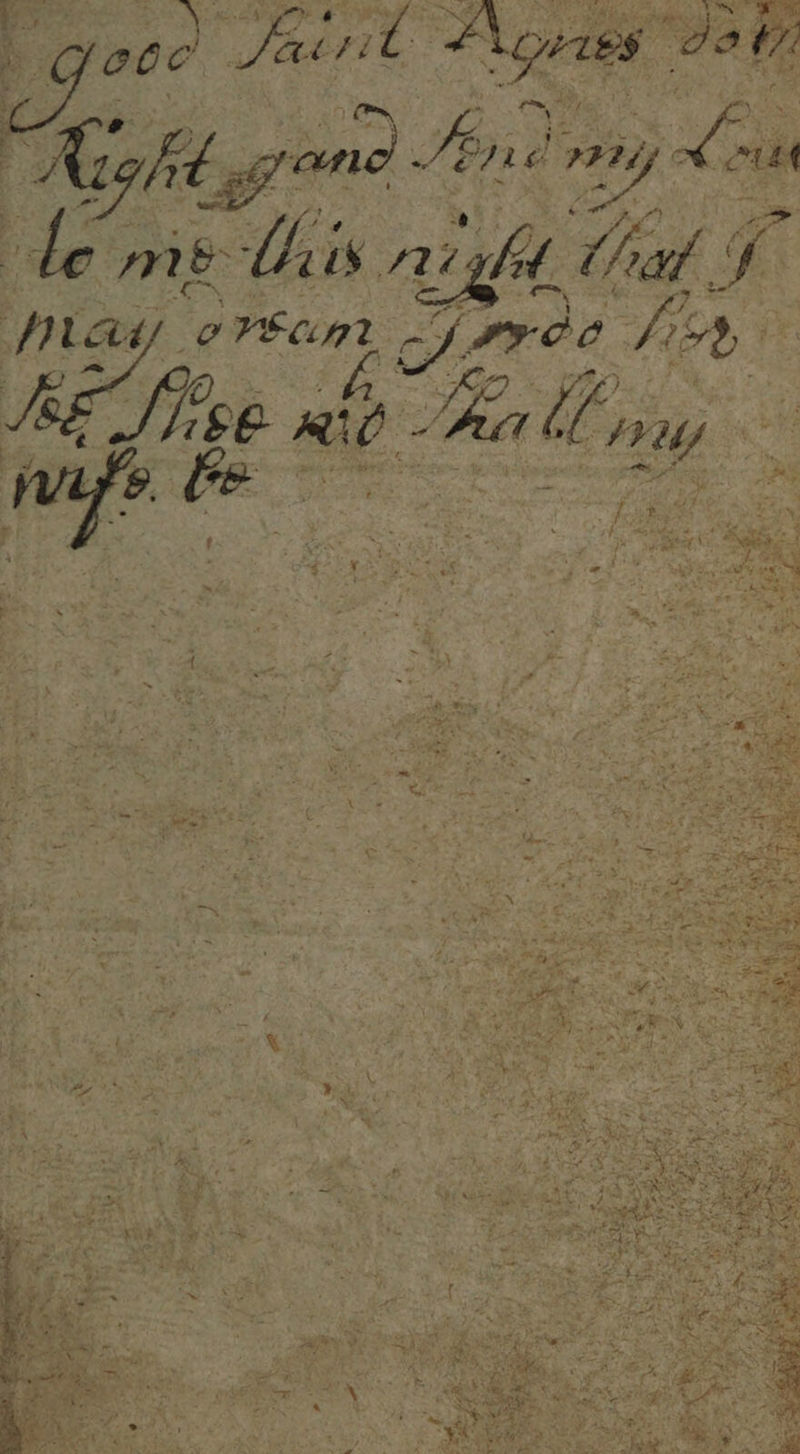 good Saint Agnes doth
Right and Send my Loue
to me this night that I
may dream I her
See Shee Shall my
wife be